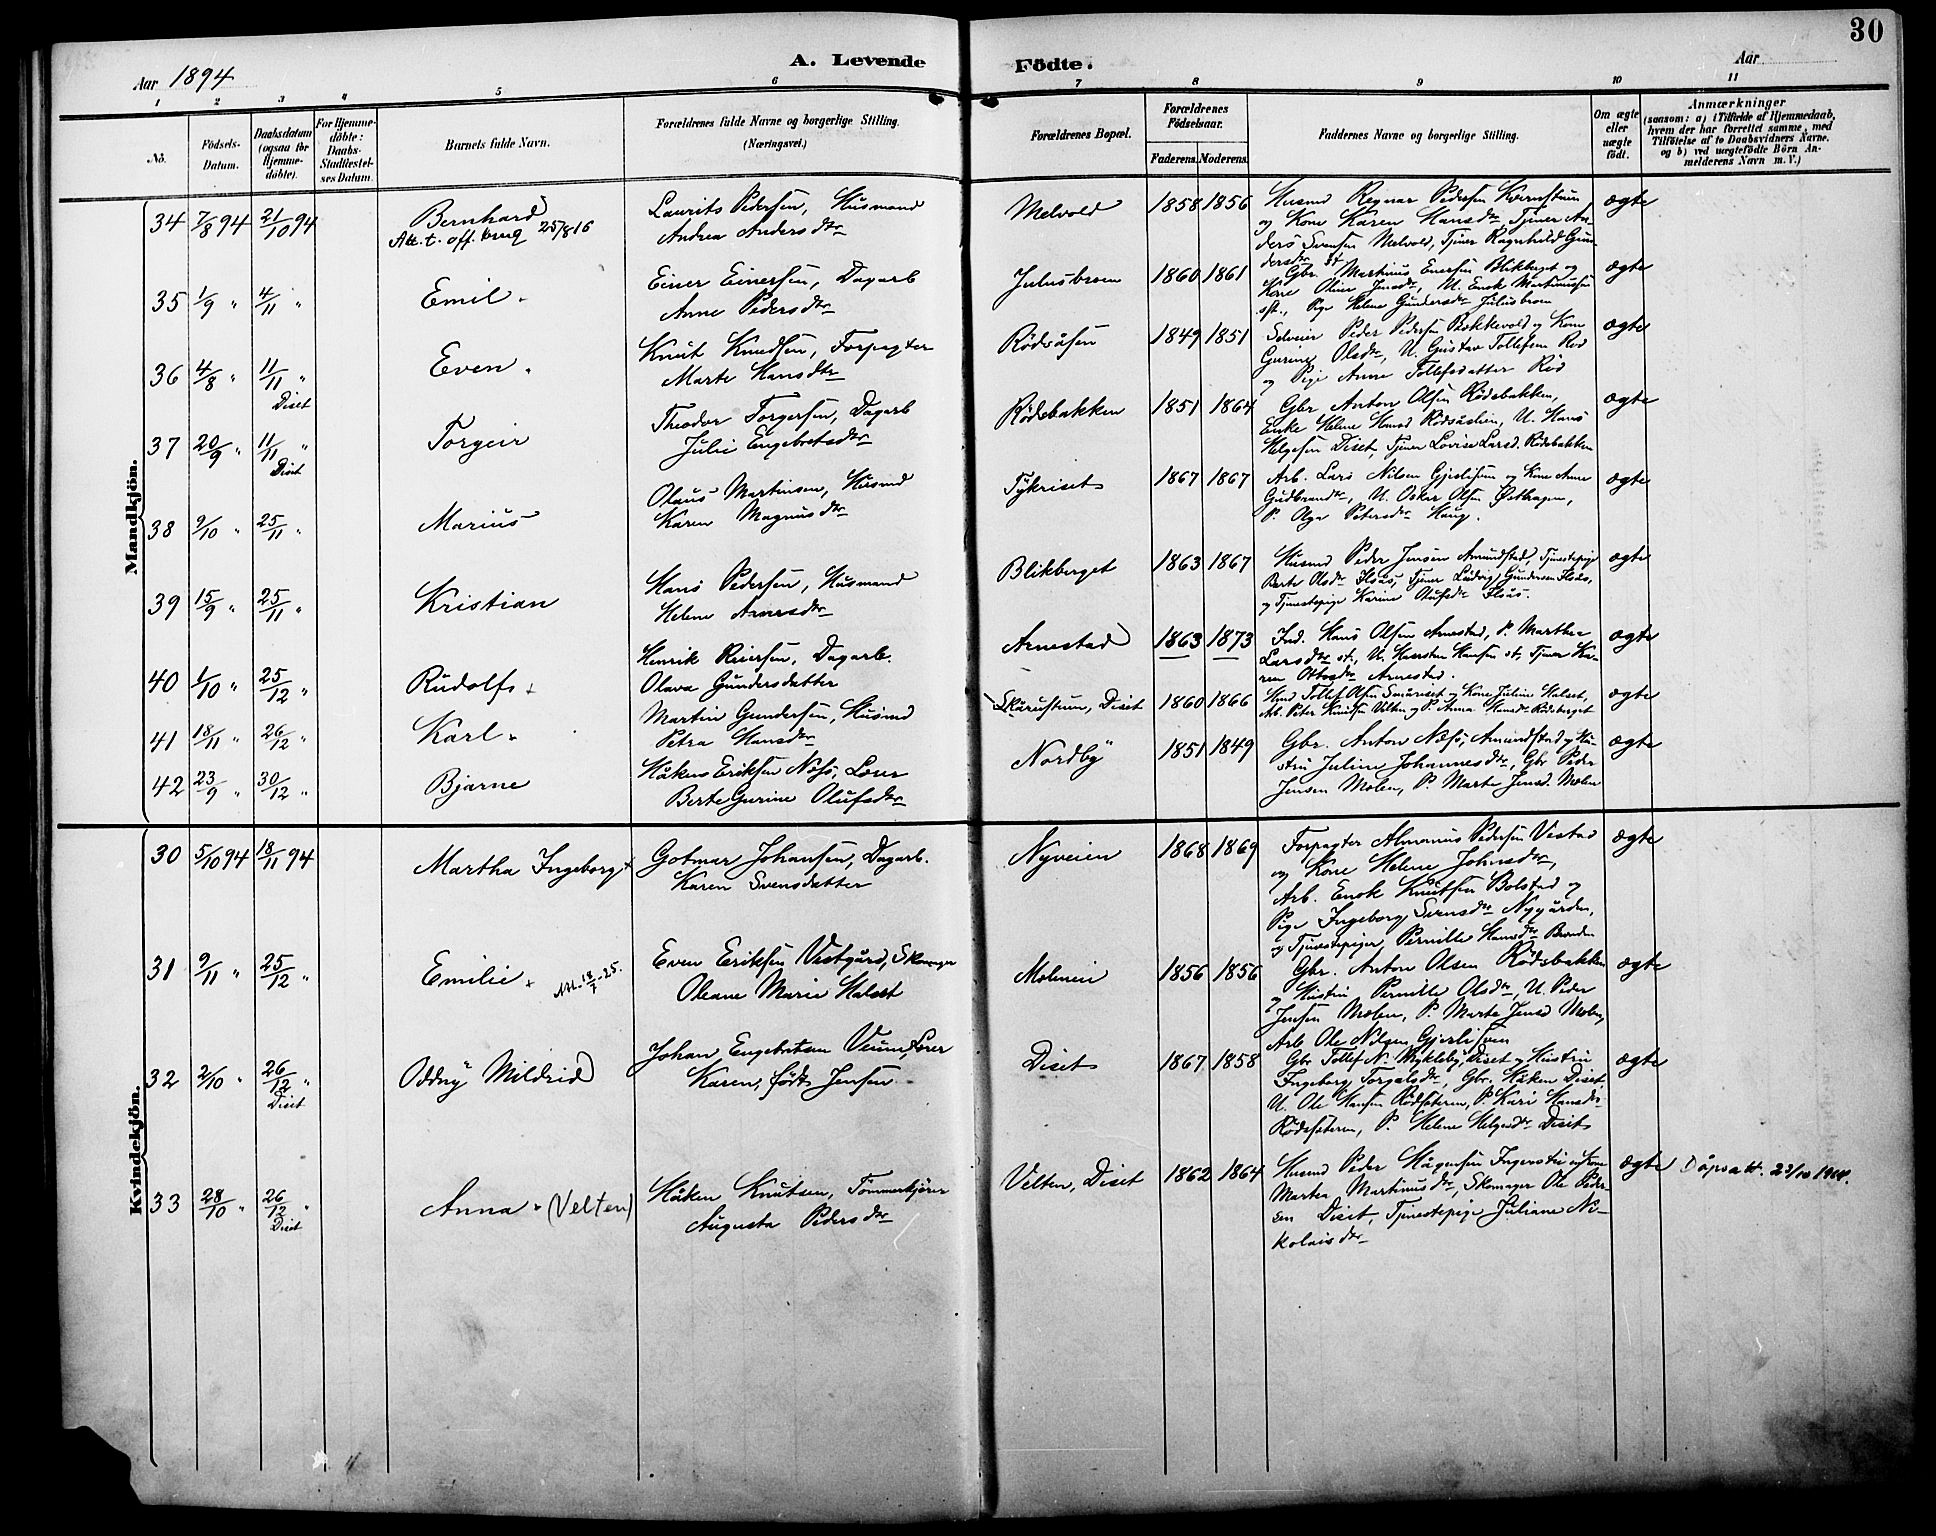 30
Aar 1894
A. Levende Födte.
Aar
1 2 3 4 5 6 7 8 9 10 11
No.
Födsels-Datum.
Daabsdatum (ogsaa for Hjemme-döbte).
For Hjemme-döbte: Daabs-Stadfæstelses Datum.
Barnets fulde Navn.
Forældrenes fulde Navne og borgerlige Stilling. (Næringsvei.)
Forældrenes Bopæl.
Forældrenes Födselsaar.
Faderens. Moderens.
Faddernes Navne og borgerlige Stilling.
Om ægte eller uægte födt.
Anmærkninger
(saasom: a) i Tilfælde af Hjemmedaab, hvem der har forrettet samme, med Tilföielse af to Daabsvidners Navne, og b) ved uægtefödte Börn Anmelderens Navn m. V.)
Mandkjön.
34 7/8 94 21/10 94 Bernhard
Att. t. off. brug 25/8 16
Laurits Pedersen, Husmand
Andrea Andersdtr
Melvold 1858 1856
Husmd Regnar Pedersen Kvernstrum
og Kone Karen Hansdtr, Tjener An
ders Svensen Melvold, Tjener Ragnhild Gun
dersdtr st.
ægte
35 1/9 " 4/11 " Emil
Einer Einersen, Dagarb
Anne Pedersdtr
Julusbroen 1860 1861
Gbr Martinus Enersen Blikberget og
Kone Oline Jensdtr, U. Enok Martinussen
sst., Pige Helene Gundersdtr Julusbroen
ægte
36 4/8 " 11/11 " Diset Even
Knut Knudsen, Forpagter
Marte Hansdtr
Rödsåsen 1849 1851
Selveier Peder Pedersen Bakkevold og Kone
Gurine Olsdtr, U. Gustav Tollefsen Röd
og Pige Anne Tollefsdatter Röd
ægte
37 20/9 " 11/11 " Diset Torgeir
Theodor Torgersen, Dagarb
Julie Engebretsdtr
Rödsbakken 1851 1864
Gbr Anton Olsen Rödsbakken,
Enke Helene Hansd Rödsåslien, U. Hans
Helgesen Diset, Tjener Lovise Larsd. Rödsbakken
ægte
38 9/10 " 25/11 " Marius
Olaus Martinsen, Husmd
Karen Magnusdtr
Tykriset 1867 1867
Arb. Lars Nilsen Gjerlisen og Kone Anne
Gudbrandsdtr, U. Oskar Olsen Østhagen,
P. Olga Petersdtr Haug.
ægte
39 15/9 " 25/11 " Kristian
Hans Pedersen, Husmand
Helene Arnesdtr
Blikberget 1863 1867
Husmd Peder Jensen Amundstad, Tjenestepige
Berte Olsdtr Ilsås, Tjener Ludvig Gundersen Ilsås,
og Tjenestepige Karine Olufsdtr Ilsås.
ægte
40 1/10 " 25/12 " Rudolf
Henrik Reiersen, Dagarb.
Olava Gundersdatter
Arnestad 1863 1873
Ind. Hans Olsen Arnestad, P. Marthea
Larsdtr st., U. Karsten Hansen st, Tjener Ka-
ren Ottosdtr Arnestad.
ægte
41 18/11 " 26/12 " Karl
Martin Gundersen, Husmd
Petra Hansdtr
Skärustrum, Diset 1860 1866
Hmd Tollef Olsen Småriset og Kone Juline Halset,
Arb. Peter Knudsen Velten og P. Anna Hansdtr Rödsberget
ægte
42 23/9 " 30/12 " Bjarne
Håken Eriksen Næss, Lærer
Berte Gurine Olufsdtr
Nordby 1851 1849
Gbr. Anton Næss, Amundstad og Hu-
stru Juline Johannesdtr, Gbr Peder
Jensen Molen, P. Marte Jensd. Molen
ægte
Kvindekjön.
30 5/10 94 18/11 94 Martha Ingeborg
Gotmar Johansen, Dagarb.
Karen Svensdatter
Nyveien 1868 1869
Forpagter Almanus Pedersen Vestad
og Kone Helene Johnsdtr,
Arb. Enok Knutsen Bolstad og
Pige Ingeborg Svensdtr Nygården,
og Tjenestepige Pernille Hansdtr Brenden
ægte
31 9/11 " 25/12 " Emilie Att. 18/7-25.
Even Eriksen Vestgård, Skomager
Oleane Marie Halset
Moleneie 1856 1856
Gbr. Anton Olsen Rödsbakken
og Hustru Pernille Olsdtr, U. Peder
Jensen Molen, P. Marte Jensd Molen,
Arb Ole Nilsen Gjerlisen
ægte
32 2/10 " 26/12 " Diset Oddny Mildrid
Johan Engebretsen Veum, Lærer
Karen, födt Jensen
Diset 1867 1858
Gbr Tollef N. Mykleby, Diset og Hustru
Ingeborg Torgalsdtr, Gbr. Håken Diset,
U. Ole Hansen Rödsæteren, P. Kari Hansdtr
Rödsæteren, P. Helene Helgesdtr Diset
ægte
33 28/10 " 26/12 " Diset Anna (Velten)
Håken Knutsen, Tömmerkjörer
Augusta Pedersdtr
Velten, Diset 1862 1864
Husmd Peder Hågensen Ingerstu og Kone
Martea Martinusdtr, Skomager Ole Peder-
sen Diset, Tjenestepige Juliane Ni-
kolaisdtr
ægte
Dåpsatt. 23/10 1964.